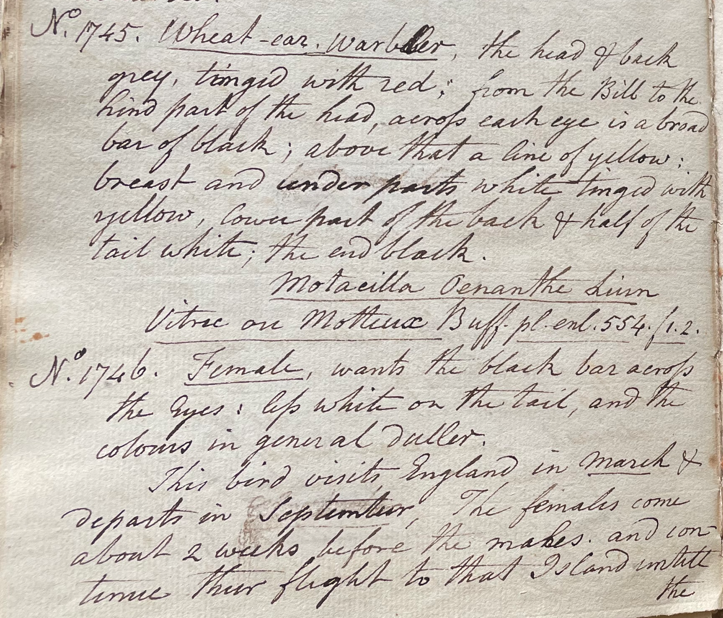 No. 1745. Wheat-ear. Warbler, the head & back
grey, tinged with red; from the Bill to the
hind part of the head, across each eye is a broad
bar of black; above that a line of yellow:
breast and under parts white tinged with
yellow, lower part of the back & half of the
tail white; the end black.
Motacilla Oenanthe Linn
Vitrec ou Motteux Buff. pl. enl. 554. f. 1. 2.
No. 1746. Female, wants the black bar across
the Eyes: less white on the tail, and the
colours in general duller.
This bird visits England in march &
departs in September. The females come
about 2 weeks before the males. and con-
tinue their flight to that Island untill
the